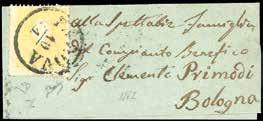 alla Spettabile Famiglia
del Compianto Benefico
Sigr Clemente Primodì
Bologna